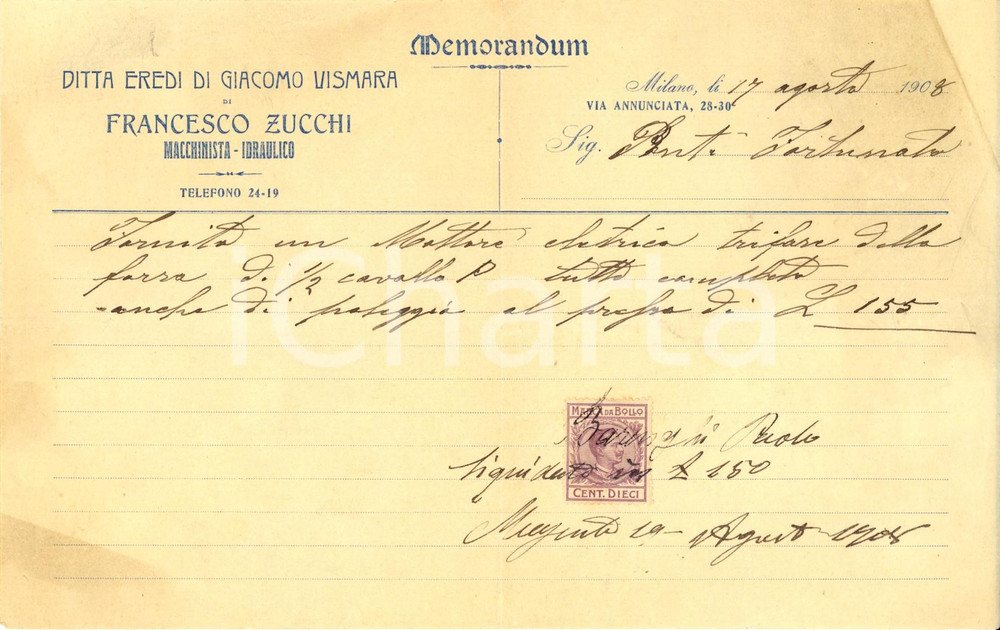 Memorandum
DITTA EREDI DI GIACOMO VISMARA
DI
FRANCESCO ZUCCHI
MACCHINISTA - IDRAULICO
TELEFONO 24-19
Milano, li 17 agosto 1908
VIA ANNUNCIATA, 28-30
Sig. Ponti Fortunato
Fornito un Mottore eletrico trifase della
forza di 1/2 cavallo P tutto completo
anche di puleggia al prezzo di L 155
iCharta
MARCA DA BOLLO
Paolo
liquidato in £ 150
CENT. DIECI
19 Agosto 1908